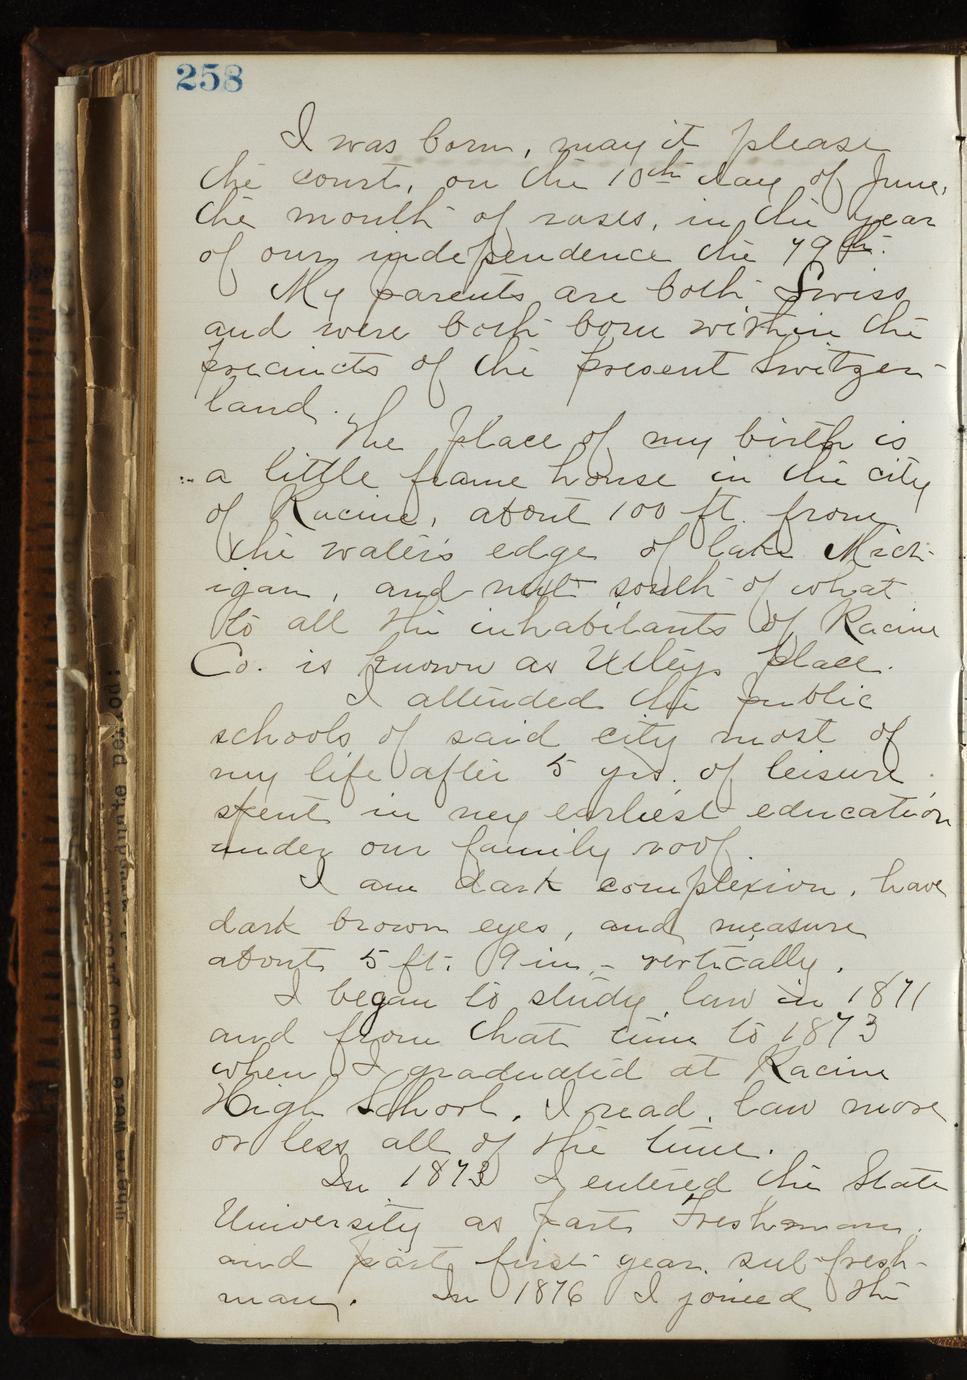 258
I was born, may it please
the court, on the 10th day of June,
the month of roses, in the year
of our independence the 79th.
My parents are both Swiss
and were both born within the
precincts of the present Switzer-
land.
The place of my birth is
a little frame house in the city
of Racine, about 100 ft. from
the water's edge of lake Mich-
igan, and south of what
to all the inhabitants of Racine
Co. is known as Utleys place.
I attended the public
schools of said city most of
my life after 5 yrs. of leisure
spent in my earliest education
under our family roof.
I am dark complexion, have
dark brown eyes, and measure
about 5 ft. 9 in. - vertically.
I began to study law in 1871
and from that time to 1873
when I graduated at Racine
High School, I read law more
or less all of the time.
In 1873 I entered the State
University as part Freshman
and part first year sub-fresh-
man. In 1876 I joined the
where were
graduate period: